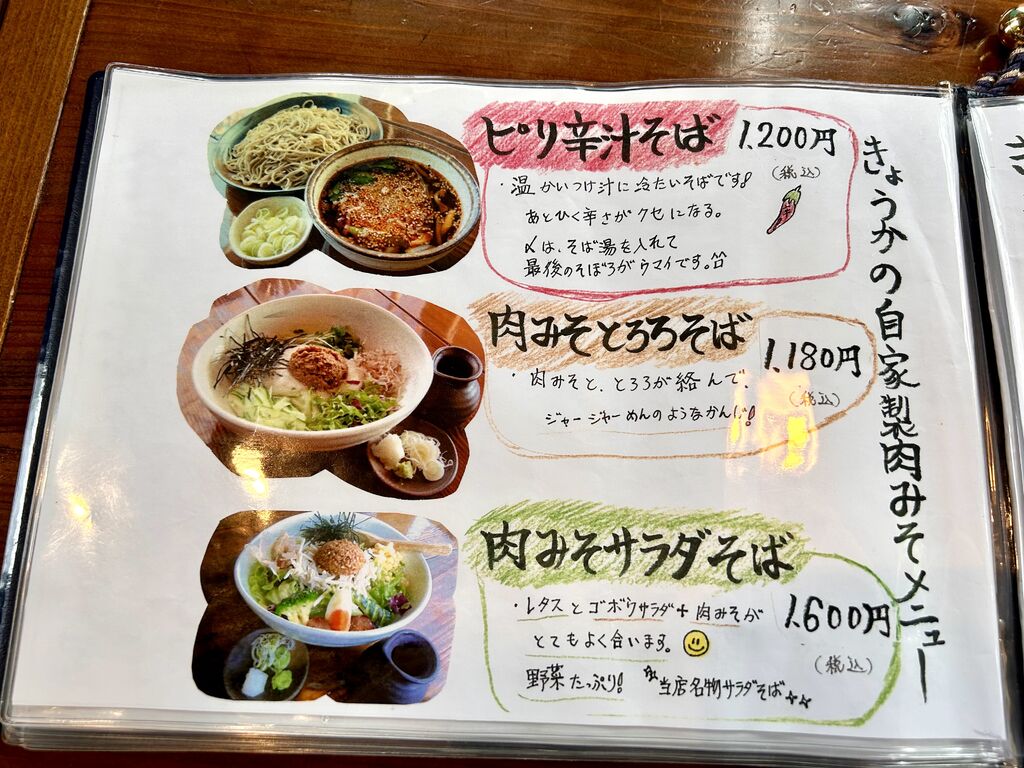 きょうかの自家製肉みそメニュー
ピリ辛汁そば
1,200円
(税込)
・温かいつけ汁に冷たいそばです!
あとひく辛さがクセになる。
〆は、そば湯を入れて
最後のそぼろがウマイです。
肉みそとろろそば
1,180円
(税込)
・肉みそと、とろろが絡んで、
ジャージャーめんのようなかんじ!
肉みそサラダそば
1,600円
(税込)
・レタスとゴボウサラダ+肉みそが
とてもよく合います。
野菜たっぷり!
当店名物サラダそば